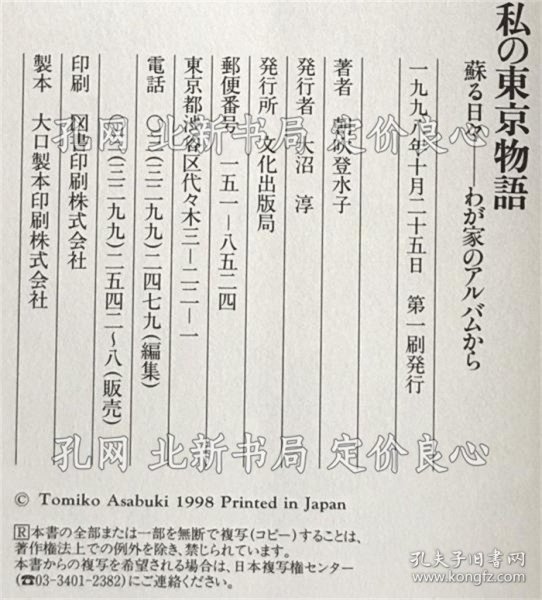 私の東京物語
蘇る日々――わが家のアルバムから
一九九八年十月二十五日 第一刷発行
著者 朝吹登水子
発行者 大沼 淳
発行所 文化出版局
郵便番号 一五一―八五二四
東京都渋谷区代々木三―二二―一
電話 〇三(三二九九)二四七九(編集)
〇三(三二九九)二五四二〜八(販売)
印刷 図書印刷株式会社
製本 大口製本印刷株式会社
孔网 北新书局 定价良心
孔网 北新书局 定价良心
© Tomiko Asabuki 1998 Printed in Japan
Ⓡ本書の全部または一部を無断で複写(コピー)することは、
著作権法上での例外を除き、禁じられています。
本書からの複写を希望される場合は、日本複写権センター
(☎03-3401-2382)にご連絡ください。
孔夫子旧书网
www.kongfz.com